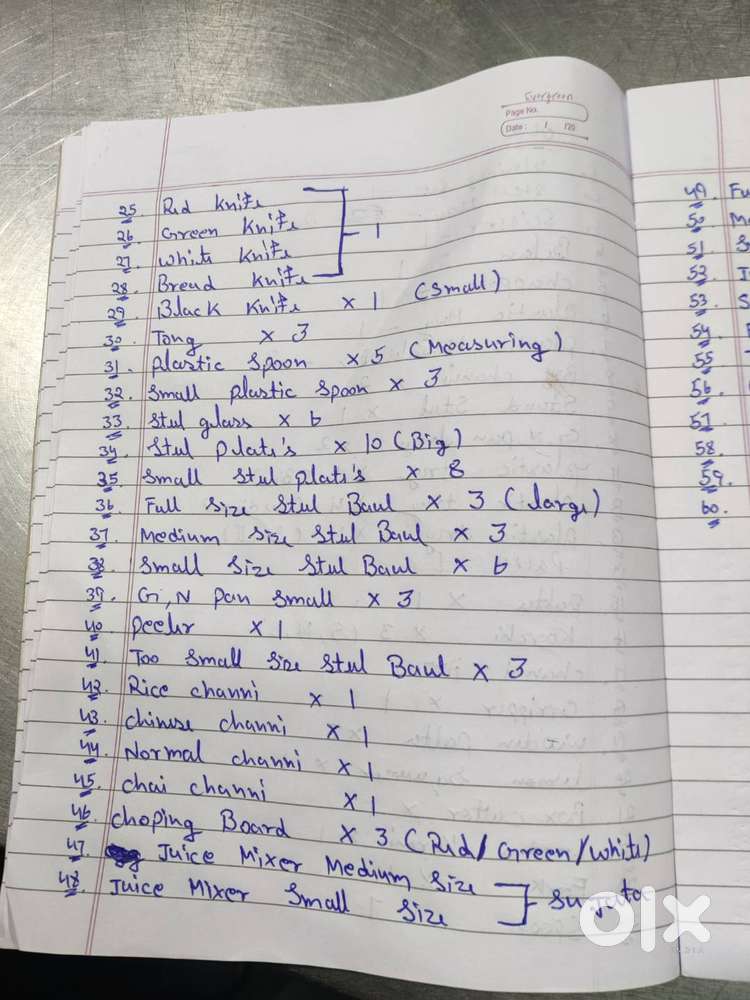 Evergreen
Page No.
Date: / /20
25. Red Knife
26. Green Knife
27. White Knife
28. Bread Knife
1
29. Black Knife x 1 (Small)
30. Tong x 3
31. plastic spoon x 5 (Measuring)
32. Small plastic spoon x 3
33. Steel glass x 6
34. Steel plate's x 10 (Big)
35. Small Steel plate's x 8
36. Full Size Steel Baul x 3 (large)
37. Medium Size Steel Baul x 3
38. Small Size Steel Baul x 6
39. G,N Pan Small x 3
40. peeler x 1
41. Too Small Size Steel Baul x 3
42. Rice channi x 1
43. chinese channi x 1
44. Normal channi x 1
45. chai channi x 1
46. choping Board x 3 (Red/Green/White)
47. Juice Mixer Medium Size
48. Juice Mixer Small Size
Sujata
49. Fu
50. M
51 S
52. I
53. S
54.
55
56.
57
58.
59.
60.
olx